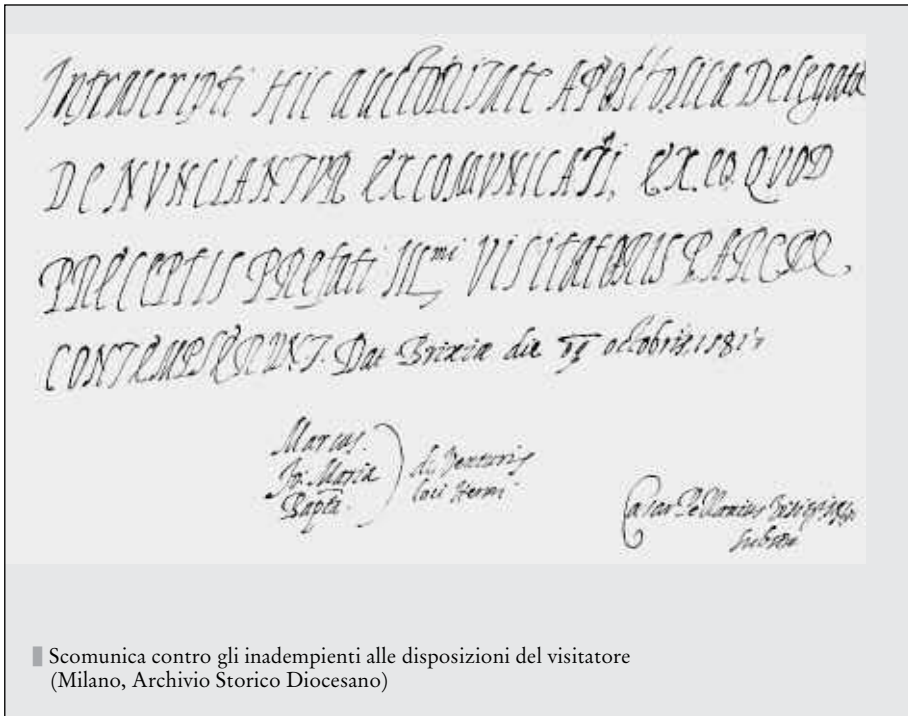 Infrascripti Hic auctoritate APostolica Delegata
DENVNCIANTVR EXCOMVNICATI, EX EO QVOD
PRECEPTIS PREfati Ill.mi VisitatoRIS PARERE
CONTEMPSERVNT. Dat Brixiæ die octobris 1581
Marcus.
Jo: Maria
Bapta.
de Venturis
loci Hermi
Cæsar
Scomunica contro gli inadempienti alle disposizioni del visitatore
(Milano, Archivio Storico Diocesano)